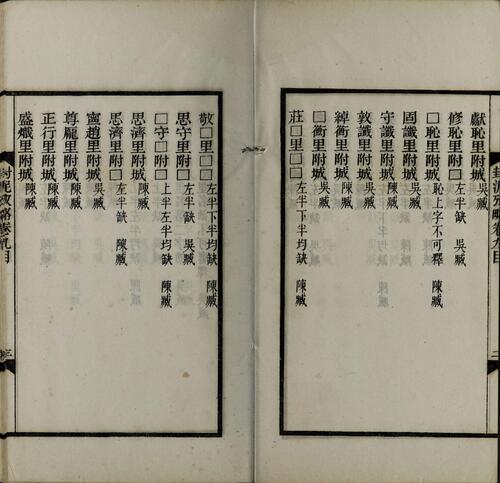 獻恥里附城 吳臧
修恥里附□ 左半缺 吳臧
□恥里附城 恥上字不可釋 陳臧
固讖里附城 吳臧
守讖里附城 陳臧
敦讖里附城 吳臧
綽衡里附城 吳臧
□衡里附城 吳臧
莊□里□□ 左半下半均缺 陳臧
敬□里□□ 左半下半均缺 陳臧
思守里附□ 左半缺 吳臧
□守□附□ 上半左半均缺 陳臧
思濟里附城 陳臧
思濟里附□ 左半缺 陳臧
甯趙里附城 吳臧
尊寵里附城 陳臧
正行里附城 陳臧
盛熾里附城 陳臧
封泥攷略卷九目 二
封泥攷略卷九目 三